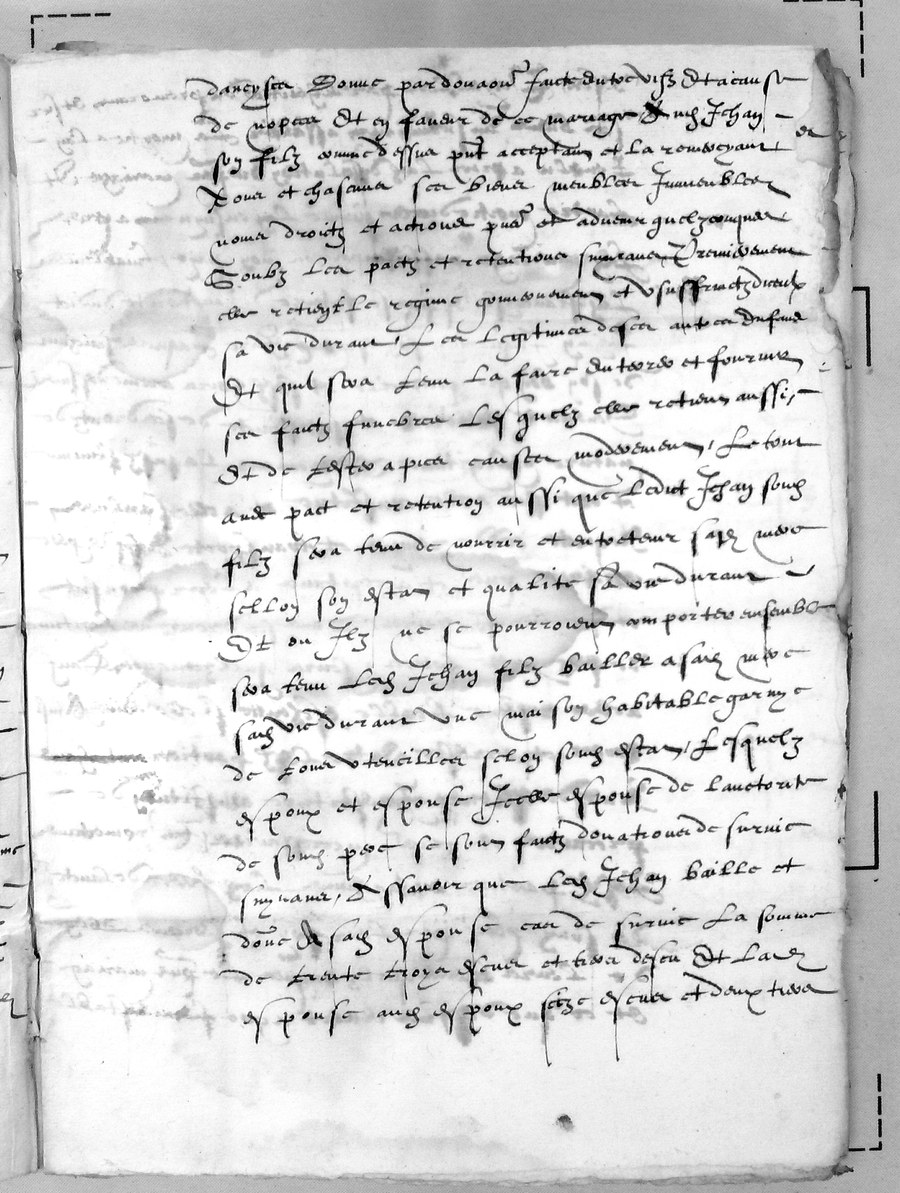 donne par donaõn faicte entre vifz Et a cause
de nopces Et en faveur de ce mariage A Jehan
son filz comme dessus pnt acceptant et la remercyant
Tous et chascuns ses biens meubles Immeubles
noms droictz et actions pns et advenir quelzconques
Soubz les pactz et retentions suyvans Premierement
elle retient le regime gouvernement et usuffruict diceulx
sa vie durant Les legitimes de ses autres enfans
Et quil sera tenu la faire enterrer et fournir
ses faictz funebres Lesquelz elle retient aussi
Et de tester a pies causes moderement Le tout
avec pact et retention aussi que Ledict Jehan soud
filz sera tenu de nourrir et entretenir sad mere
sellon son estat et qualite sa vie durant
Et ou Ilz ne se pourroient comporter ensemble
sera tenu Led Jehan filz bailler a sad mere
sad vie durant une maison habitable garnye
de tous utencilles selon soud estat Lesquelz
espoux et espouse Icelle espouse de lauctorite
de soud pere se sont faictz donations de survie
suyvans, Assavoir que Led Jehan baille et
donne A sad espouse cas de survie La somme
de trente troys escus et tiers descu Et lad
espouse aud espoux seize escus et deux tiers